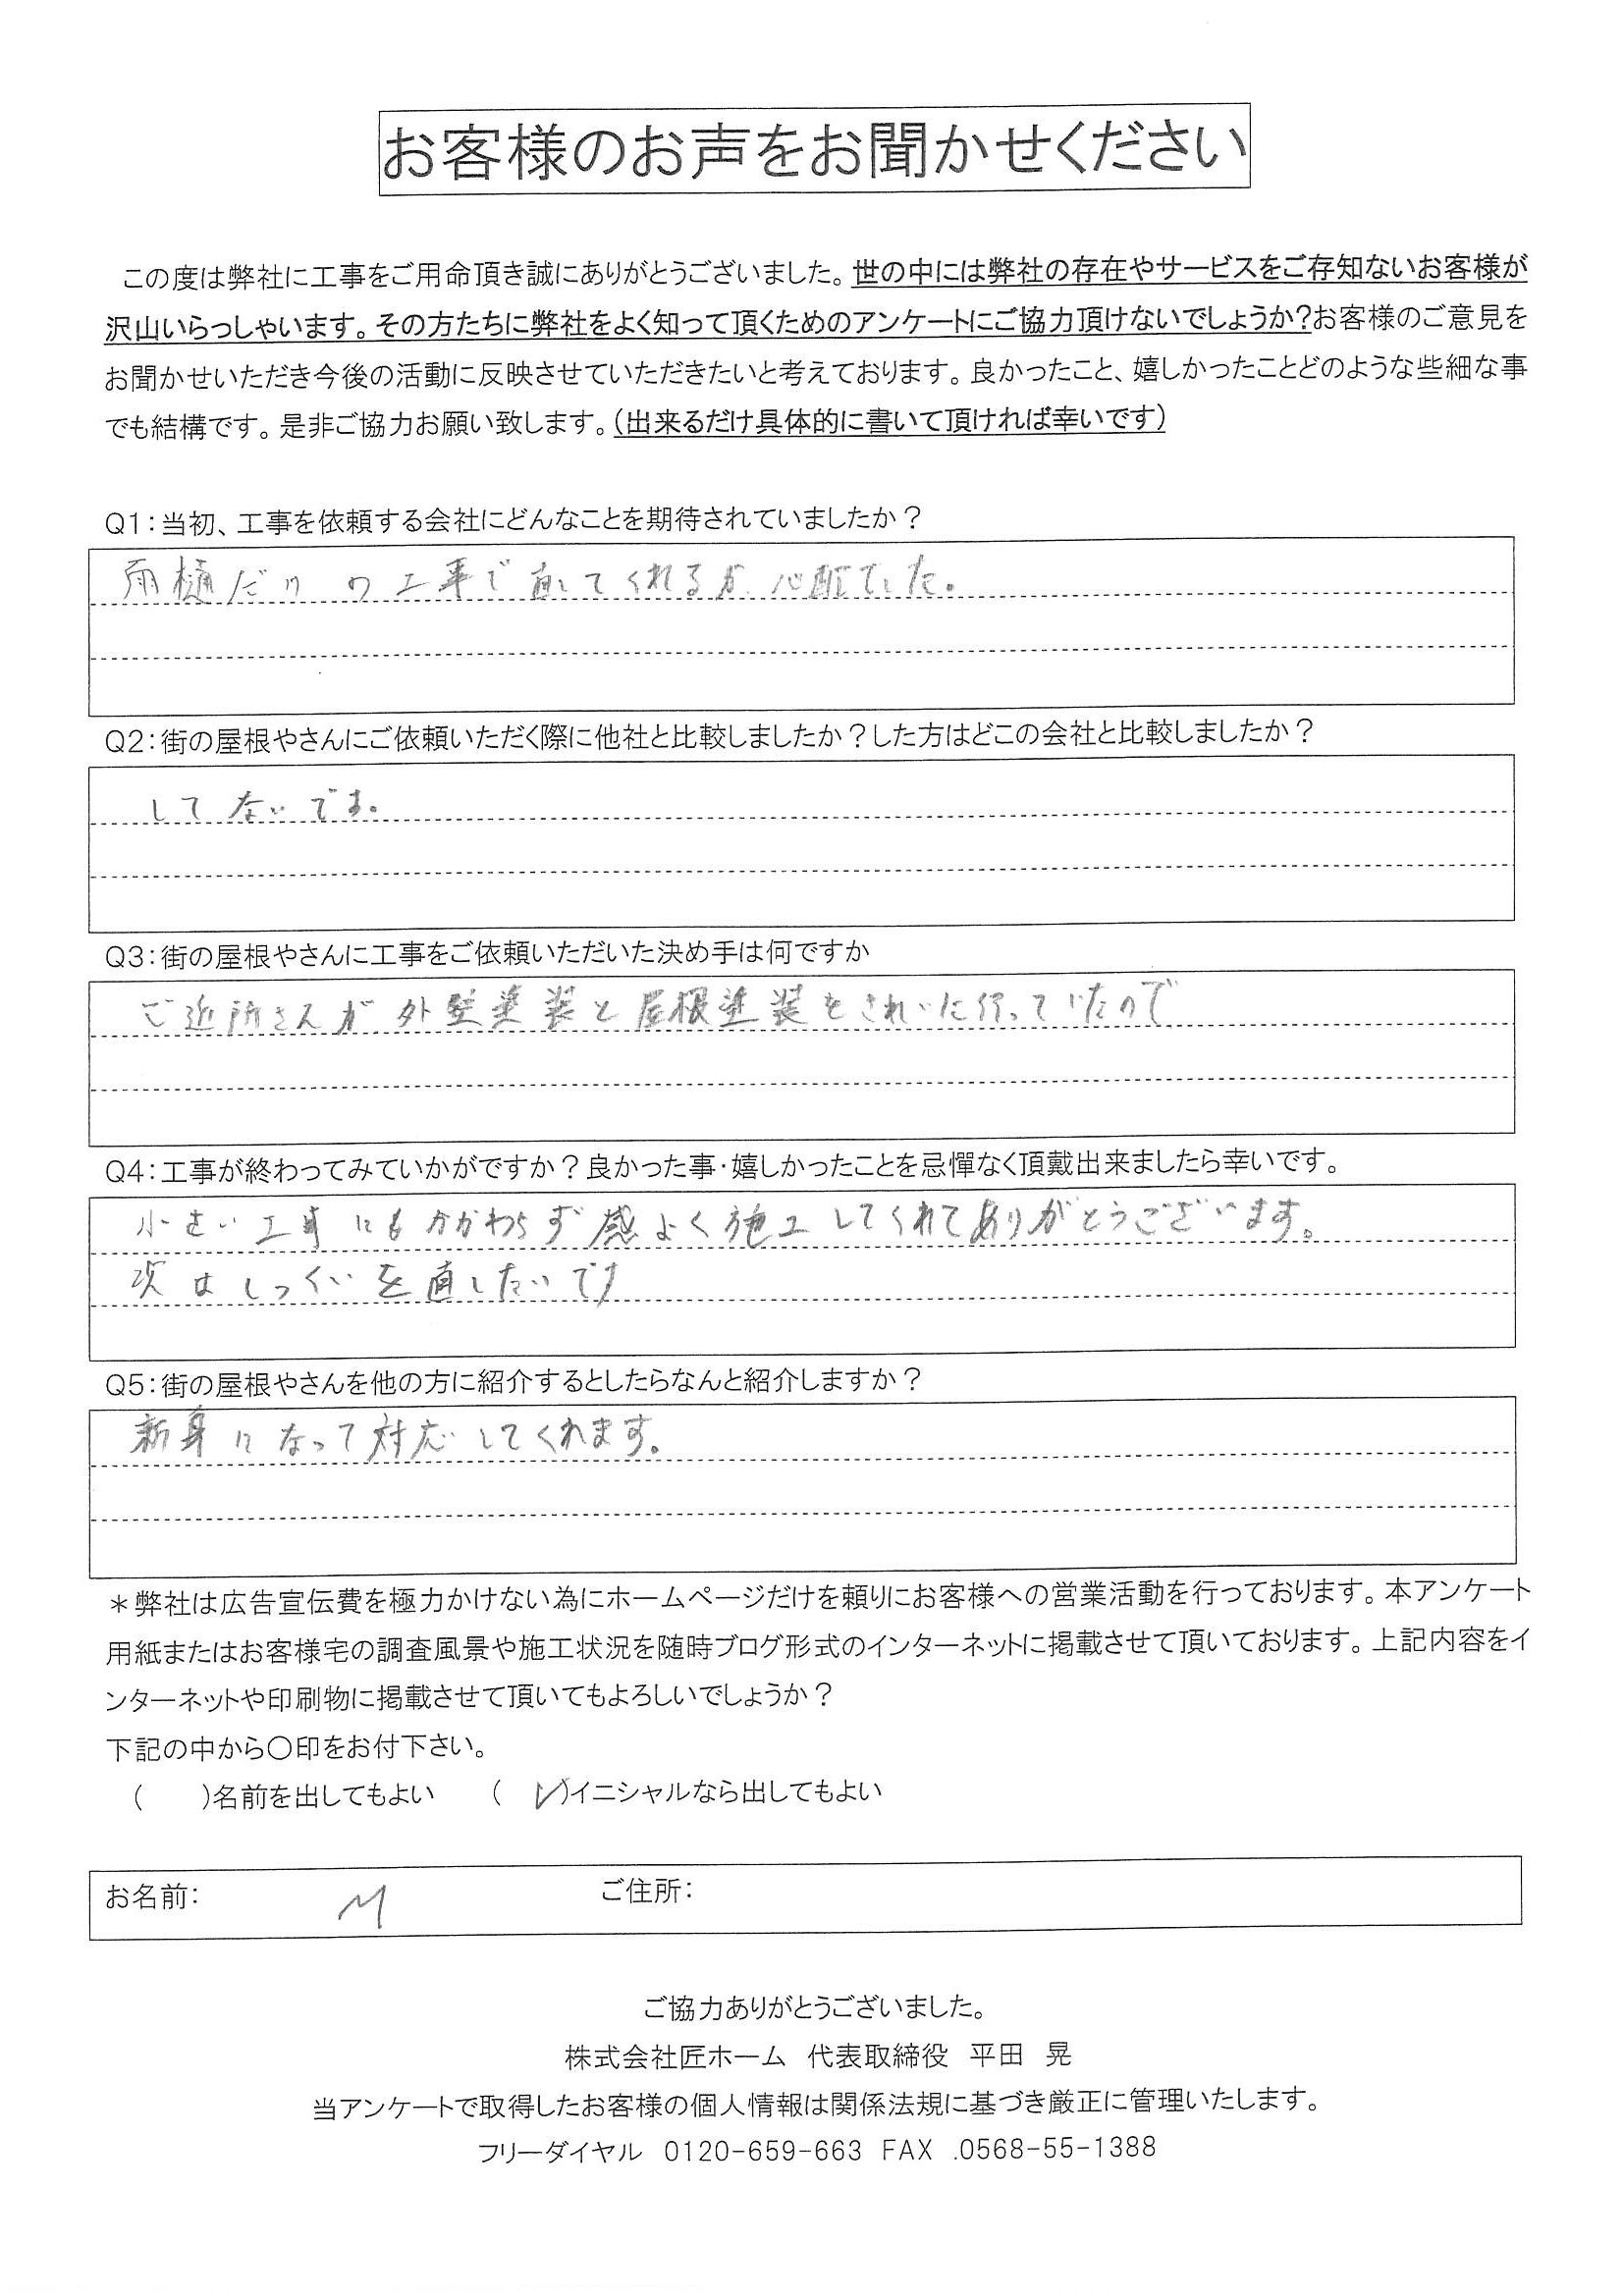 お客様のお声をお聞かせください
この度は弊社に工事をご用命頂き誠にありがとうございました。世の中には弊社の存在やサービスをご存知ないお客様が
沢山いらっしゃいます。その方たちに弊社をよく知って頂くためのアンケートにご協力頂けないでしょうか?お客様のご意見を
お聞かせいただき今後の活動に反映させていただきたいと考えております。良かったこと、嬉しかったことどのような些細な事
でも結構です。是非ご協力お願い致します。(出来るだけ具体的に書いて頂ければ幸いです)
Q1:当初、工事を依頼する会社にどんなことを期待されていましたか?
雨樋だけの工事で直してくれるか心配でした。
Q2:街の屋根やさんにご依頼いただく際に他社と比較しましたか?した方はどこの会社と比較しましたか?
してないです。
Q3:街の屋根やさんに工事をご依頼いただいた決め手は何ですか
ご近所さんが外壁塗装と屋根塗装をきれいに行っていたので
Q4:工事が終わってみていかがですか?良かった事・嬉しかったことを忌憚なく頂戴出来ましたら幸いです。
小さい工事にもかかわらず感よく施工してくれてありがとうございます。
次はしっくいを直したいです
Q5:街の屋根やさんを他の方に紹介するとしたらなんと紹介しますか?
新身になって対応してくれます。
*弊社は広告宣伝費を極力かけない為にホームページだけを頼りにお客様への営業活動を行っております。本アンケート
用紙またはお客様宅の調査風景や施工状況を随時ブログ形式のインターネットに掲載させて頂いております。上記内容をイ
ンターネットや印刷物に掲載させて頂いてもよろしいでしょうか?
下記の中から〇印をお付下さい。
(　　)名前を出してもよい　　(　レ)イニシャルなら出してもよい
お名前:　M　ご住所:
ご協力ありがとうございました。
株式会社匠ホーム　代表取締役　平田　晃
当アンケートで取得したお客様の個人情報は関係法規に基づき厳正に管理いたします。
フリーダイヤル　0120-659-663　FAX .0568-55-1388